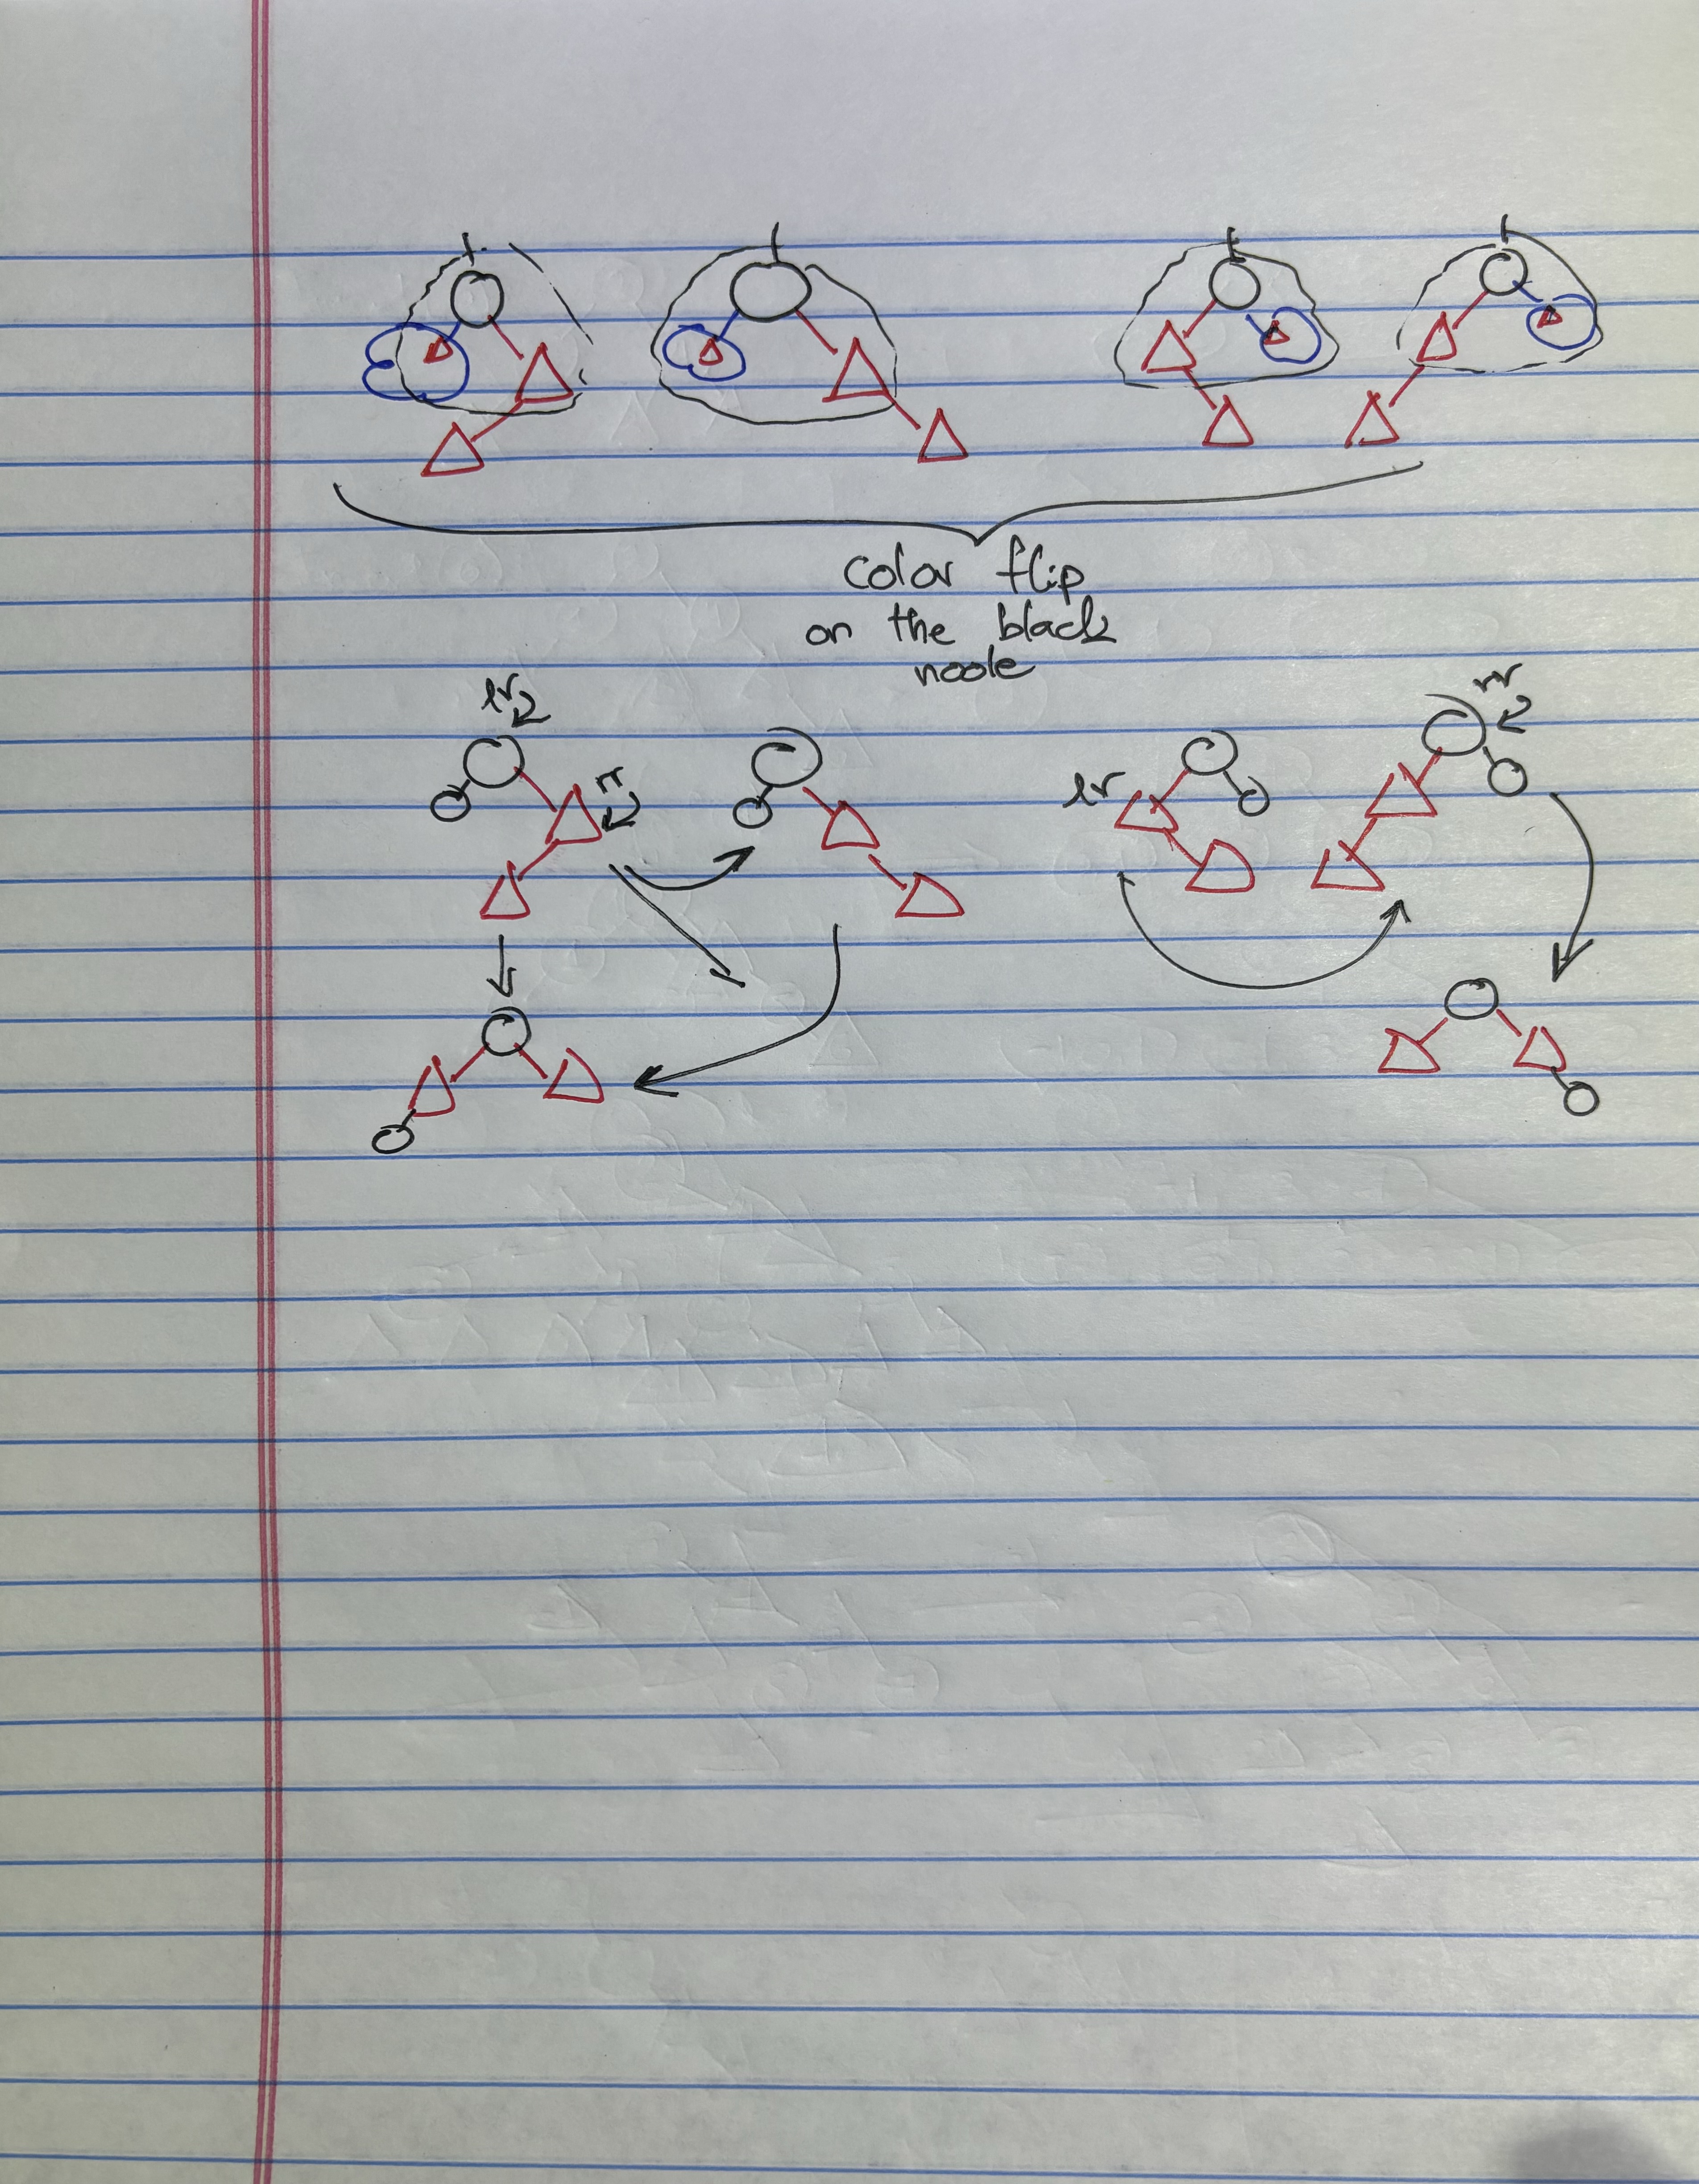 color flip
on the black
node
lr
rr
rr
lr